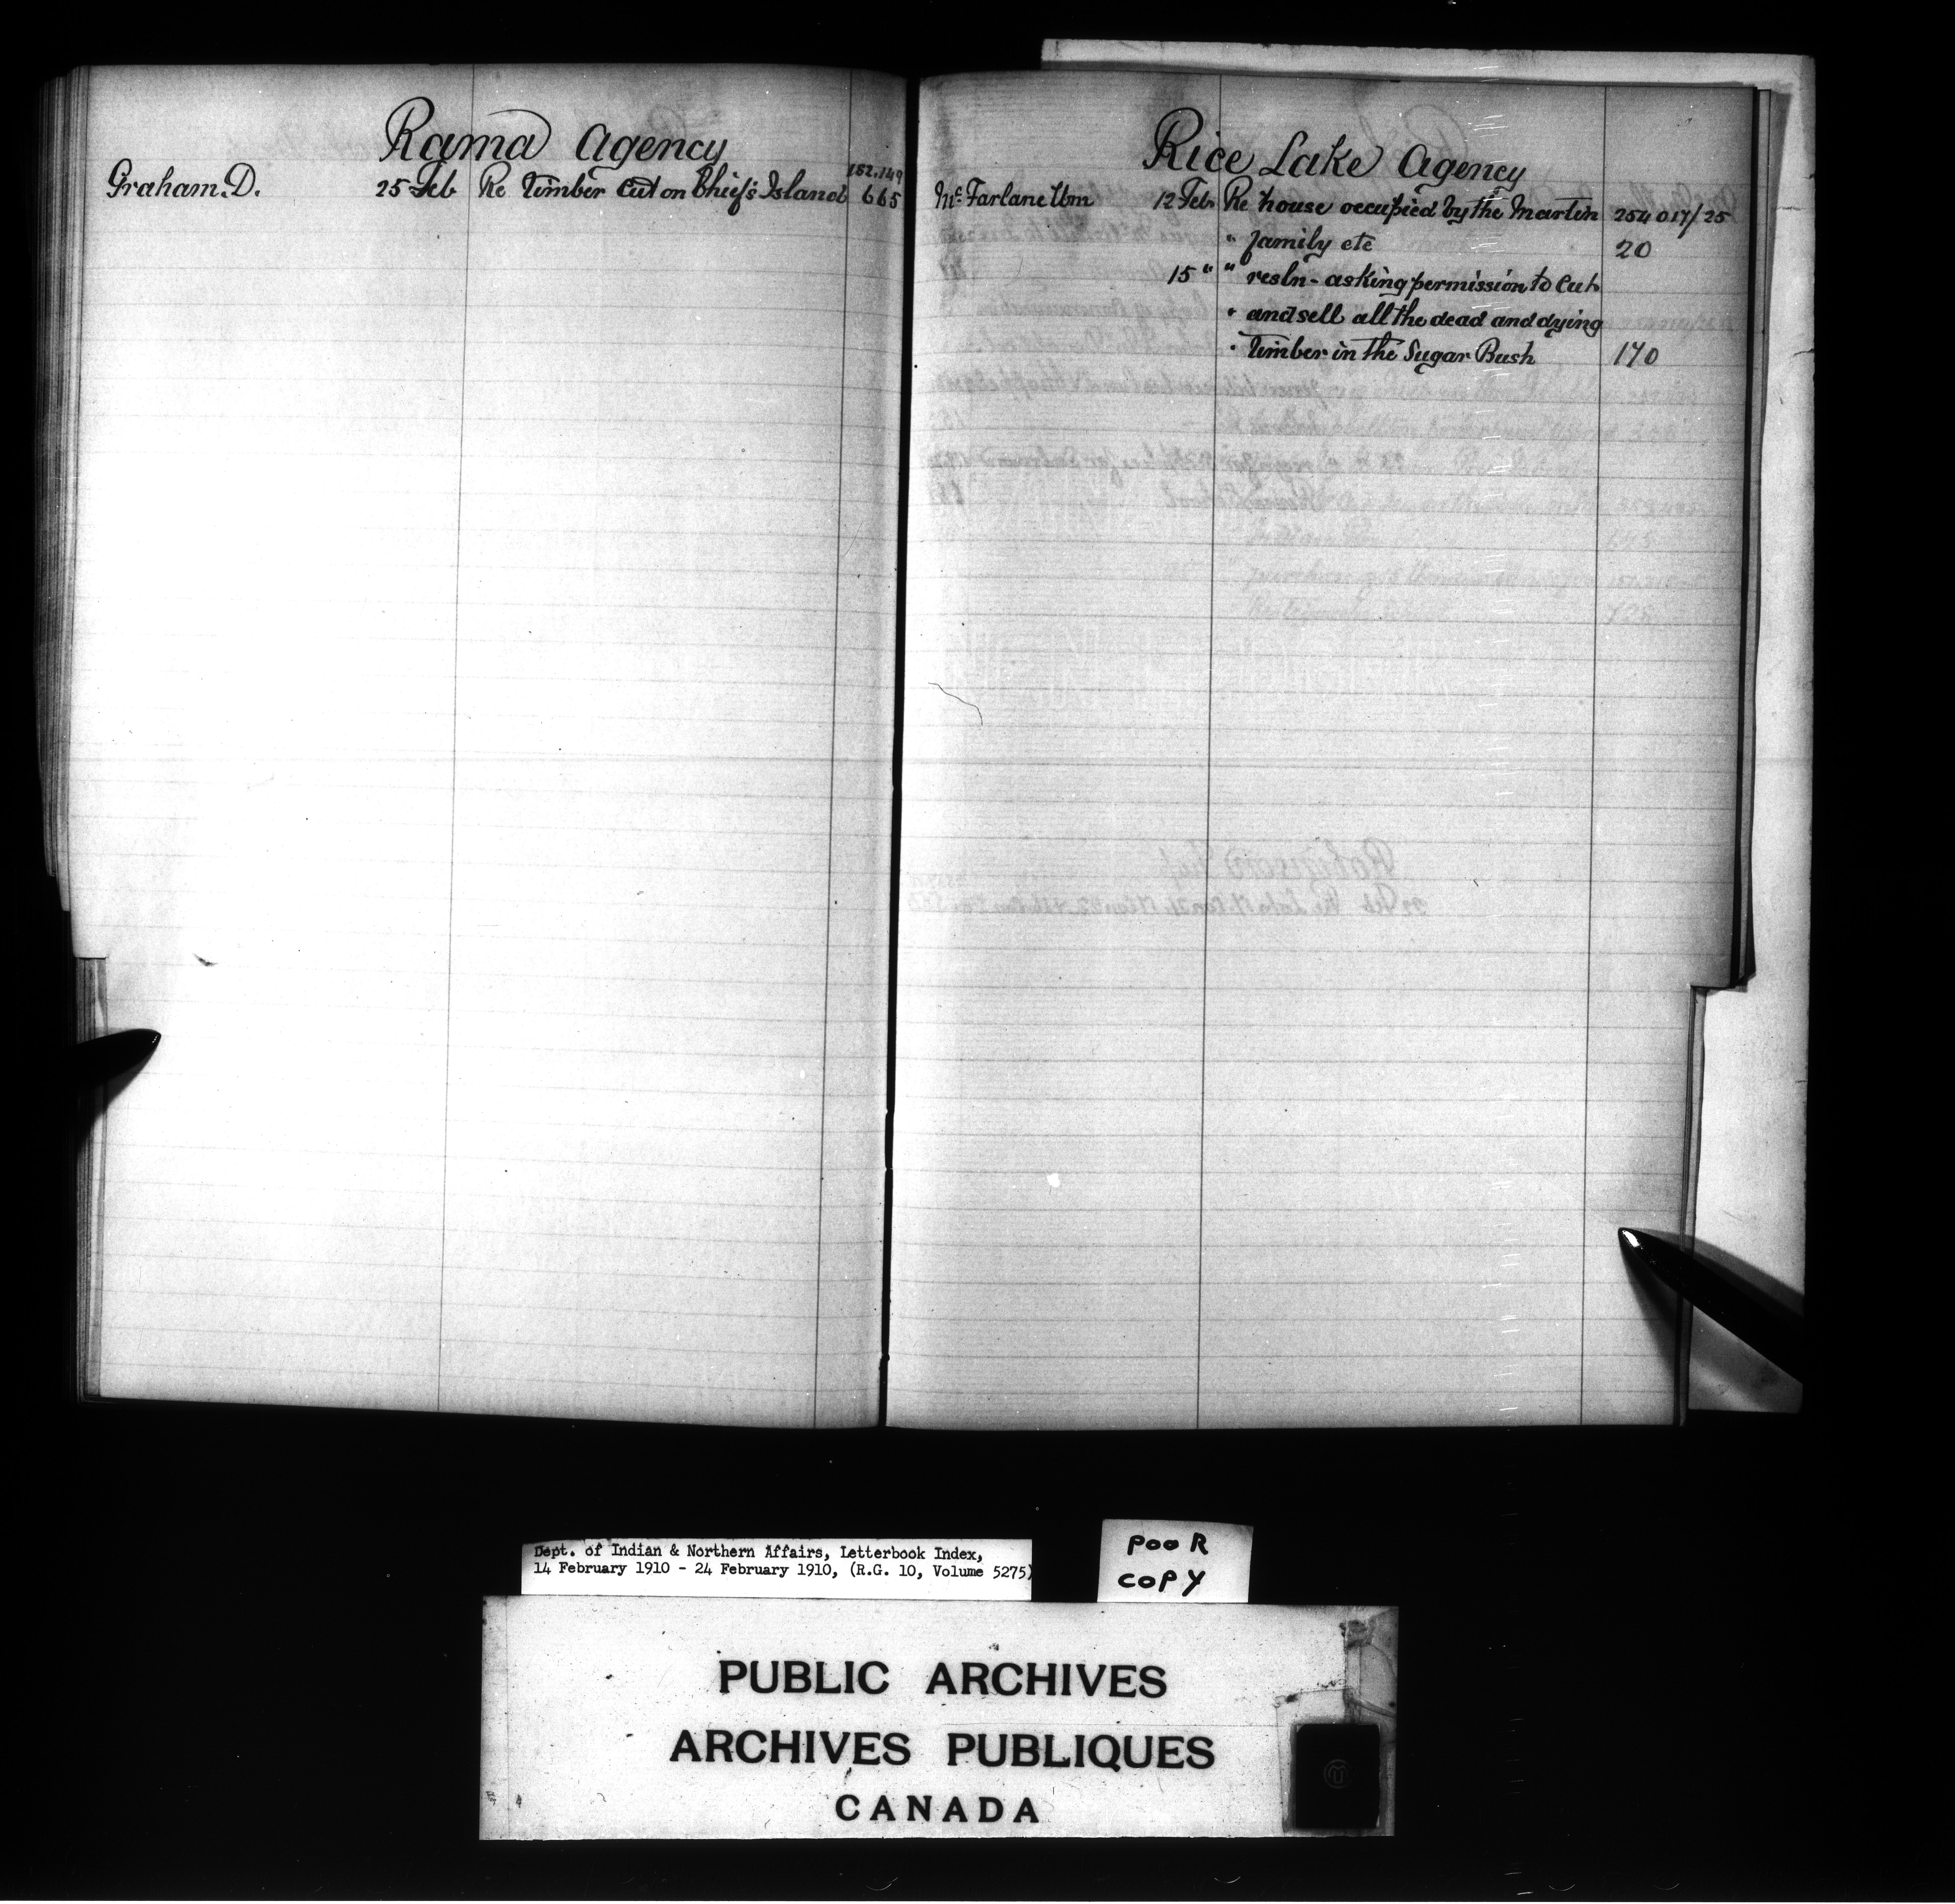 Rama Agency
152,149
Graham. D. 25 Feb Re timber cut on Chief's Island 665
Rice Lake Agency
McFarlane Wm 12 Feb Re house occupied by the Martin 254017/25
" family etc 20
15 " " resln - asking permission to cut
" and sell all the dead and dying
" timber in the Sugar Bush 170
Dept. of Indian & Northern Affairs, Letterbook Index,
14 February 1910 - 24 February 1910, (R.G. 10, Volume 5275)
POOR
COPY
PUBLIC ARCHIVES
ARCHIVES PUBLIQUES
CANADA